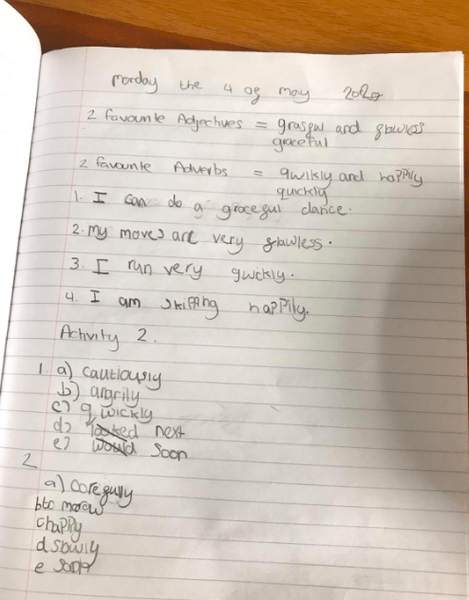 Monday the 4 og may 2020
2 favourite Adjectives = grasgul and glawless
graceful
2 favourite Adverbs = qwikly and happily
quickly
1. I can do a gracegul dance.
2. My moves are very glawless.
3. I run very qwckly.
4. I am skipping happily.
Activity 2.
1. a) cautiously
b) angrily
c) qwickly
d) looked next
e) would soon
2
a) caregully
b to morow
c happy
d slowly
e soon